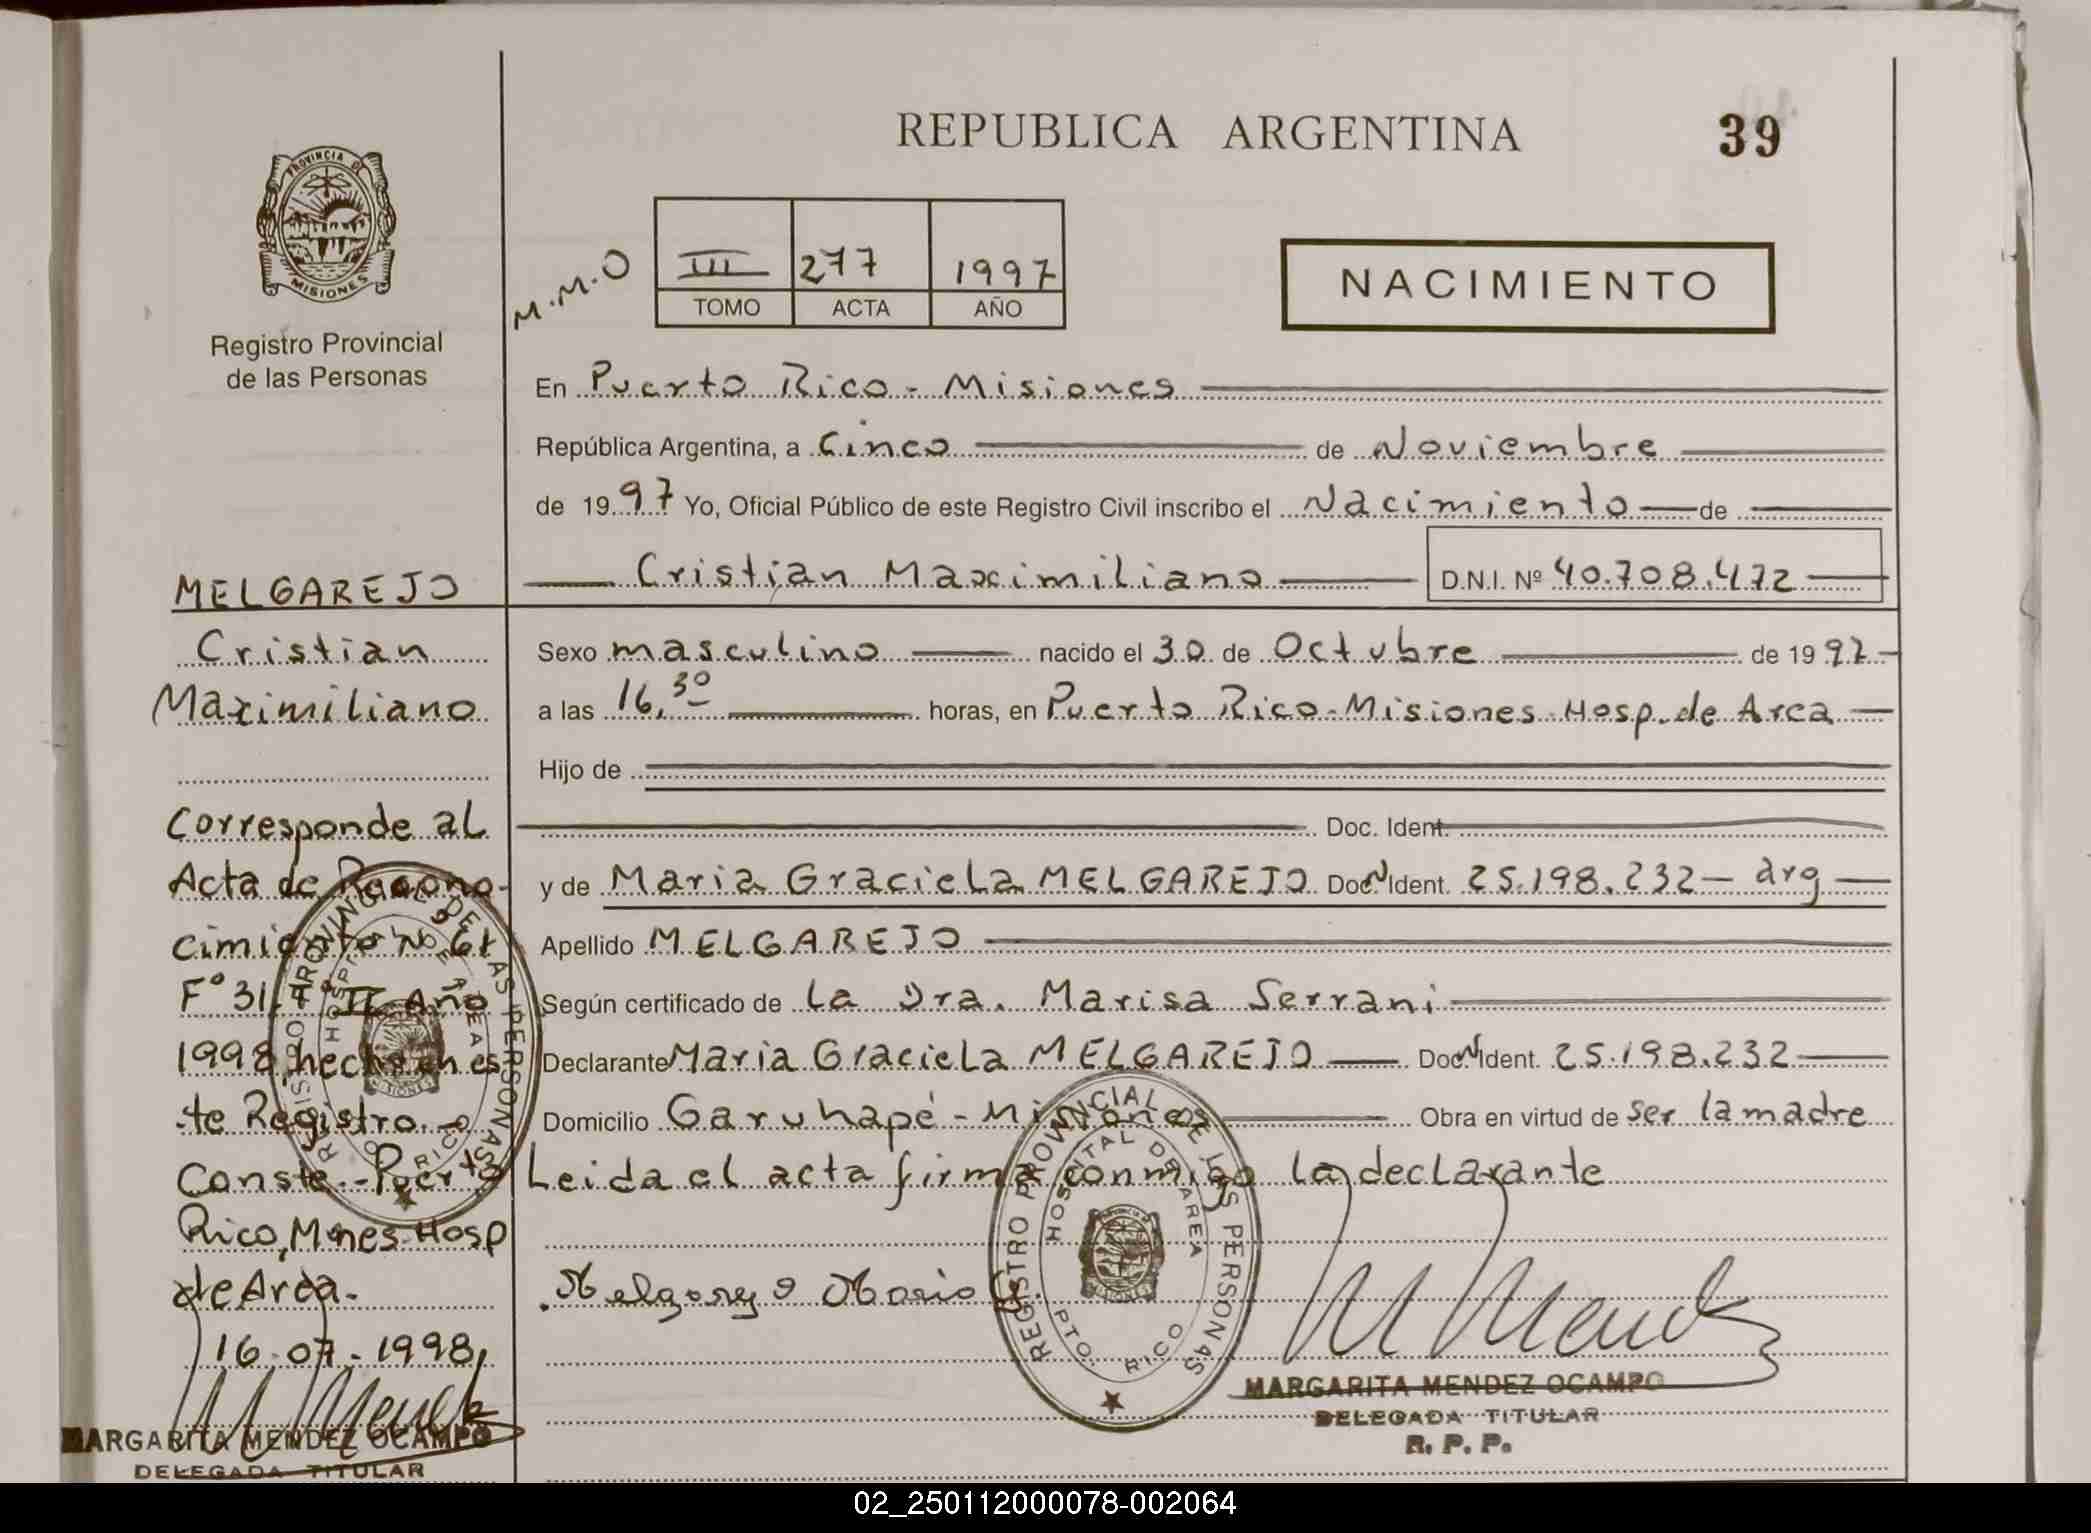 REPUBLICA ARGENTINA
39
PROVINCIA DE
MISIONES
Registro Provincial
de las Personas
M.M.O
III 277 1997
TOMO ACTA AÑO
NACIMIENTO
En Puerto Rico - Misiones
República Argentina, a Cinco de Noviembre
de 1997 Yo, Oficial Público de este Registro Civil inscribo el Nacimiento de
Cristian Maximiliano D.N.I. Nº 40.708.472
Sexo masculino nacido el 30 de Octubre de 1997
a las 16,30 horas, en Puerto Rico - Misiones - Hosp. de Area
Hijo de
Doc. Ident.
y de Maria Graciela MELGAREJO Doc. Ident. 25.198.232 - arg
Apellido MELGAREJO
Según certificado de la Dra. Marisa Serrani
Declarante Maria Graciela MELGAREJO Doc. Ident. 25.198.232
Domicilio Garuhapé - Misiones Obra en virtud de ser la madre
Leida el acta firma conmigo la declarante
Melgarejo Maria G.
M Mendez
MARGARITA MENDEZ OCAMPO
DELEGADA TITULAR
R. P. P.
REGISTRO PROVINCIAL DE LAS PERSONAS
HOSPITAL DE AREA
PTO. RICO
MELGAREJO
Cristian
Maximiliano
Corresponde al
Acta de Recono-
cimiento Nº 61
Fº 31. Tº II Año
1998, hecho en es-
te Registro. -
Conste. - Puerto
Rico, Mnes - Hosp
de Area.
16.07.1998,
M Mendez
MARGARITA MENDEZ OCAMPO
DELEGADA TITULAR
REGISTRO PROVINCIAL DE LAS PERSONAS
HOSPITAL DE AREA
PTO. RICO
02_250112000078-002064